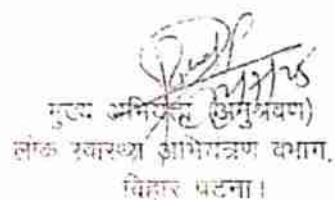 मुख्य अभियन्ता (अनुश्रवण)
लोक स्वास्थ्य अभियंत्रण विभाग,
बिहार पटना।